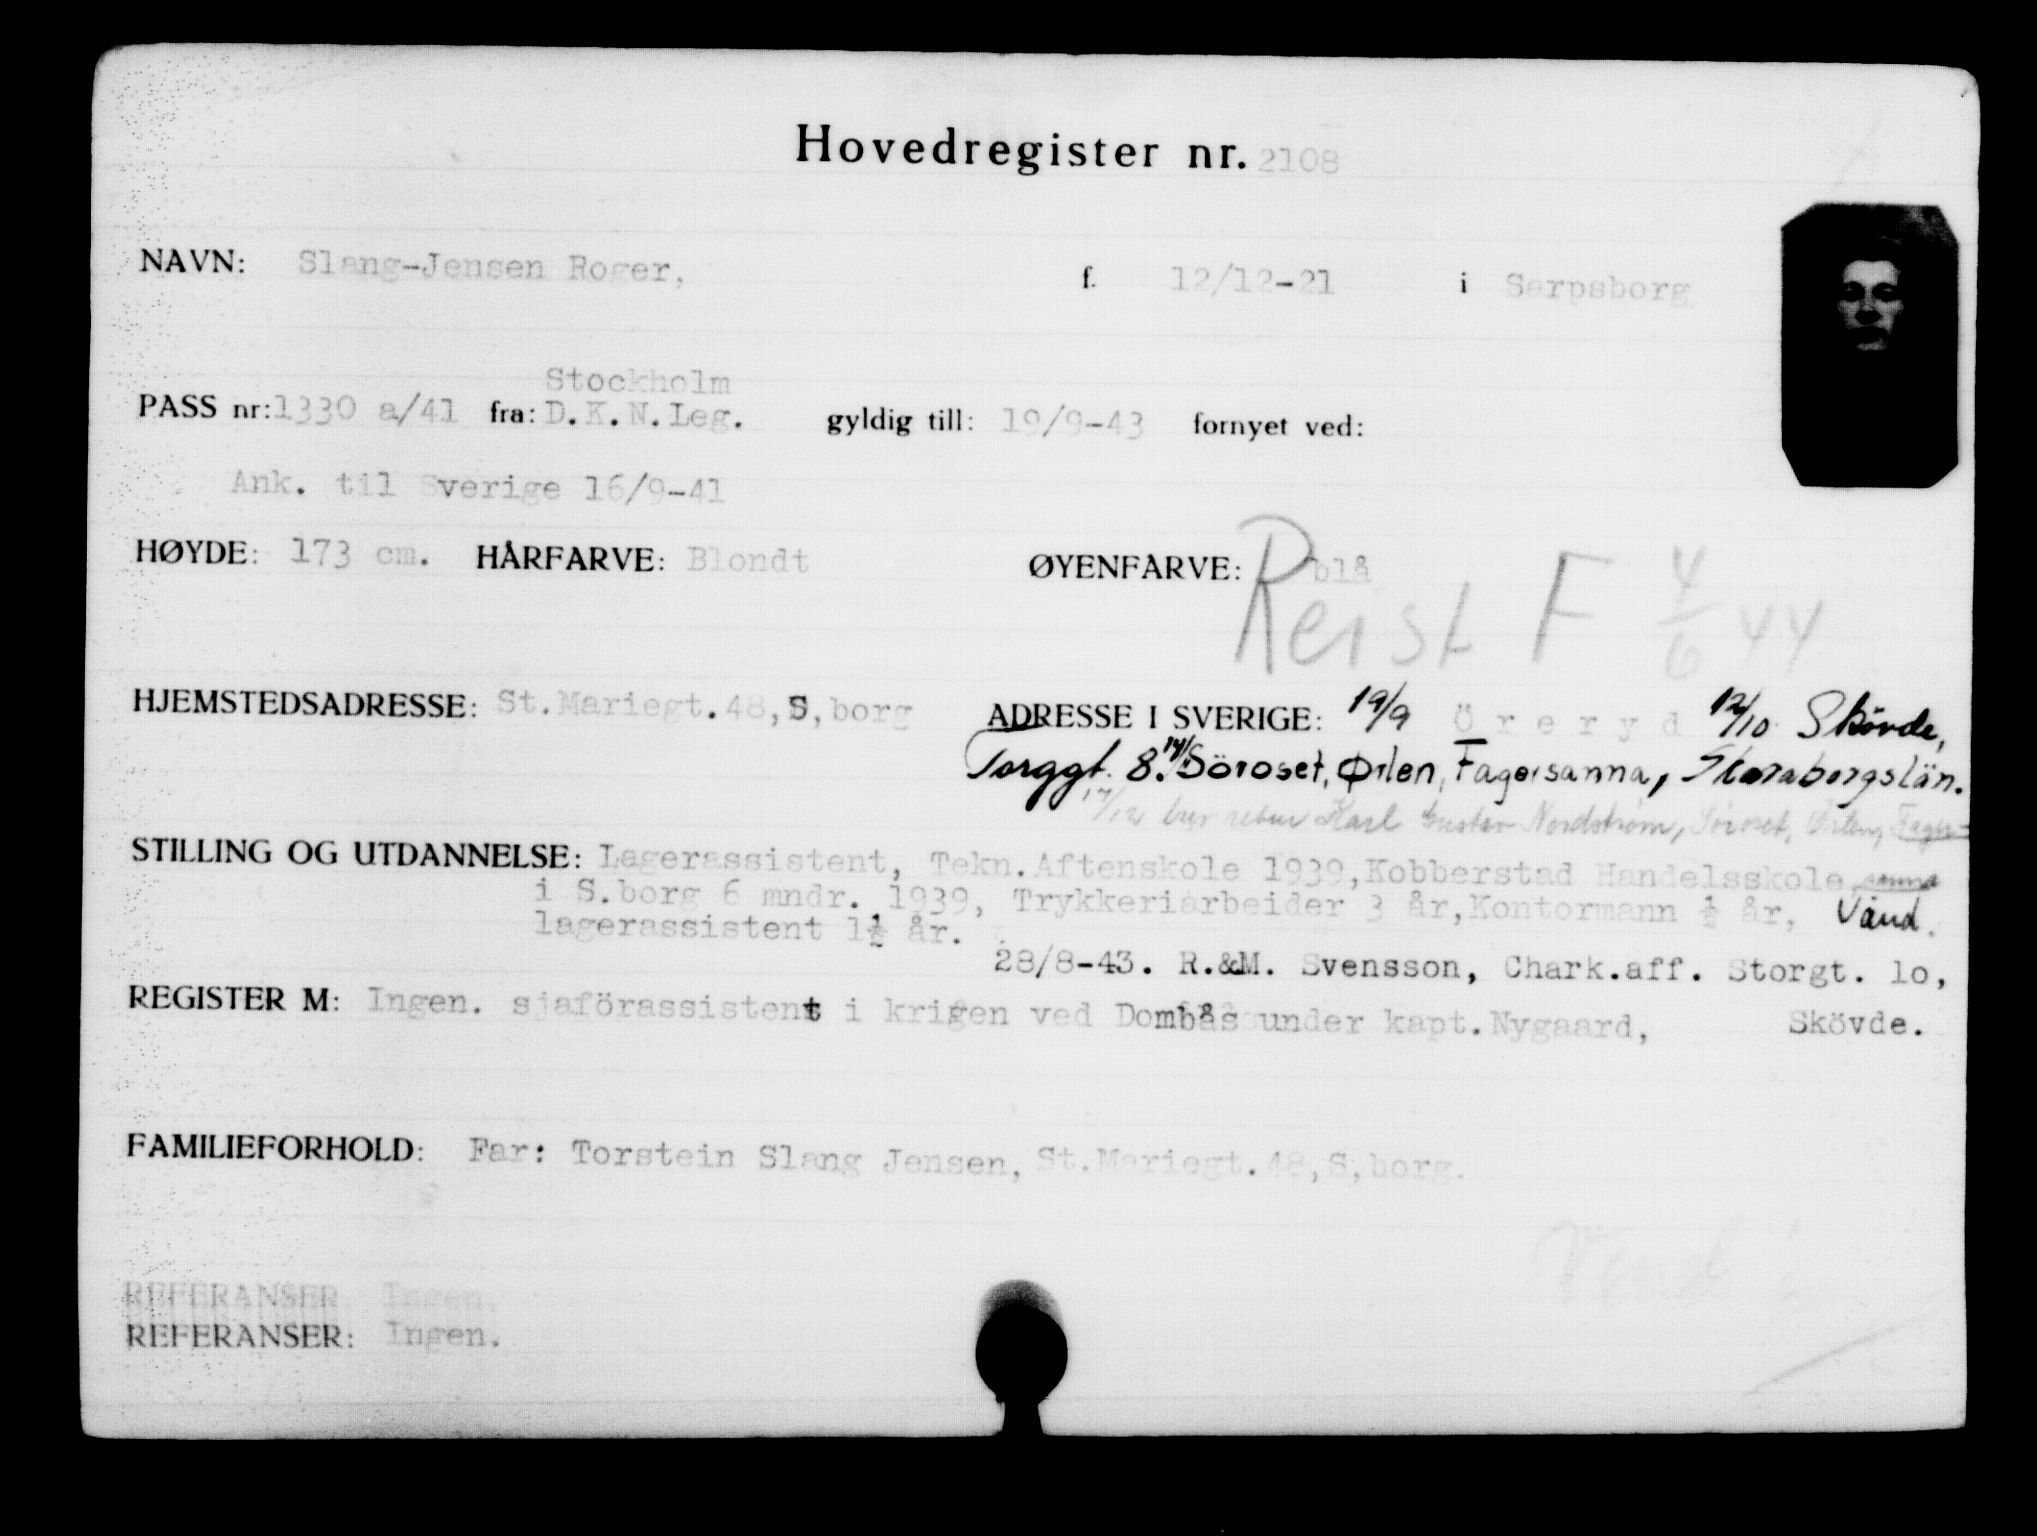 Hovedregister nr. 2108
NAVN: Slang-Jensen Roger, f. 12/12-21 i Sarpsborg
Stockholm
PASS nr: 1330 a/41 fra: D.K.N.Leg. gyldig till: 19/9-43 fornyet ved:
Ank. til Sverige 16/9-41
HØYDE: 173 cm. HÅRFARVE: Blondt ØYENFARVE: blå
Reist F 4/6 44
HJEMSTEDSADRESSE: St.Mariegt.48,S,borg ADRESSE I SVERIGE: 19/9 Öreryd 12/10 Skövde,
Torggt. 8. Söroset, Ørlen, Fagersanna, Skaraborgslän.
17/12 Karl Gustav Nordstrøm, Söroset, Ørlen, Fager-
STILLING OG UTDANNELSE: Lagerassistent, Tekn.Aftenskole 1939, Kobberstad Handelsskole sanna
i S.borg 6 mndr. 1939, Trykkeriarbeider 3 år, Kontormann ½ år, Vänd.
lagerassistent 1½ år.
28/8-43. R.&M. Svensson, Chark.aff. Storgt. 1o,
REGISTER M: Ingen. sjaförassistent i krigen ved Dombås under kapt. Nygaard, Skövde.
FAMILIEFORHOLD: Far: Torstein Slang Jensen, St.Mariegt.48,S,borg.
Vend!
REFERANSER Ingen.
REFERANSER: Ingen.